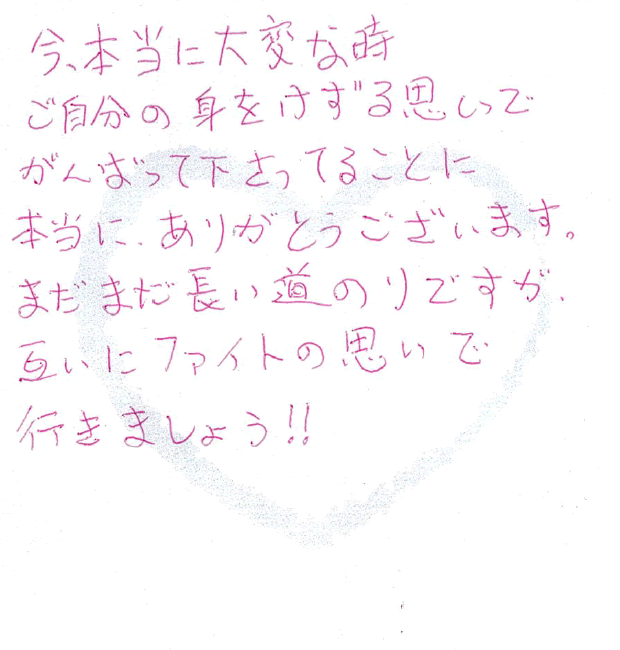 今、本当に大変な時
ご自分の身をけずる思いで
がんばって下さってることに
本当に、ありがとうございます。
まだまだ長い道のりですが、
互いにファイトの思いで
行きましょう!!